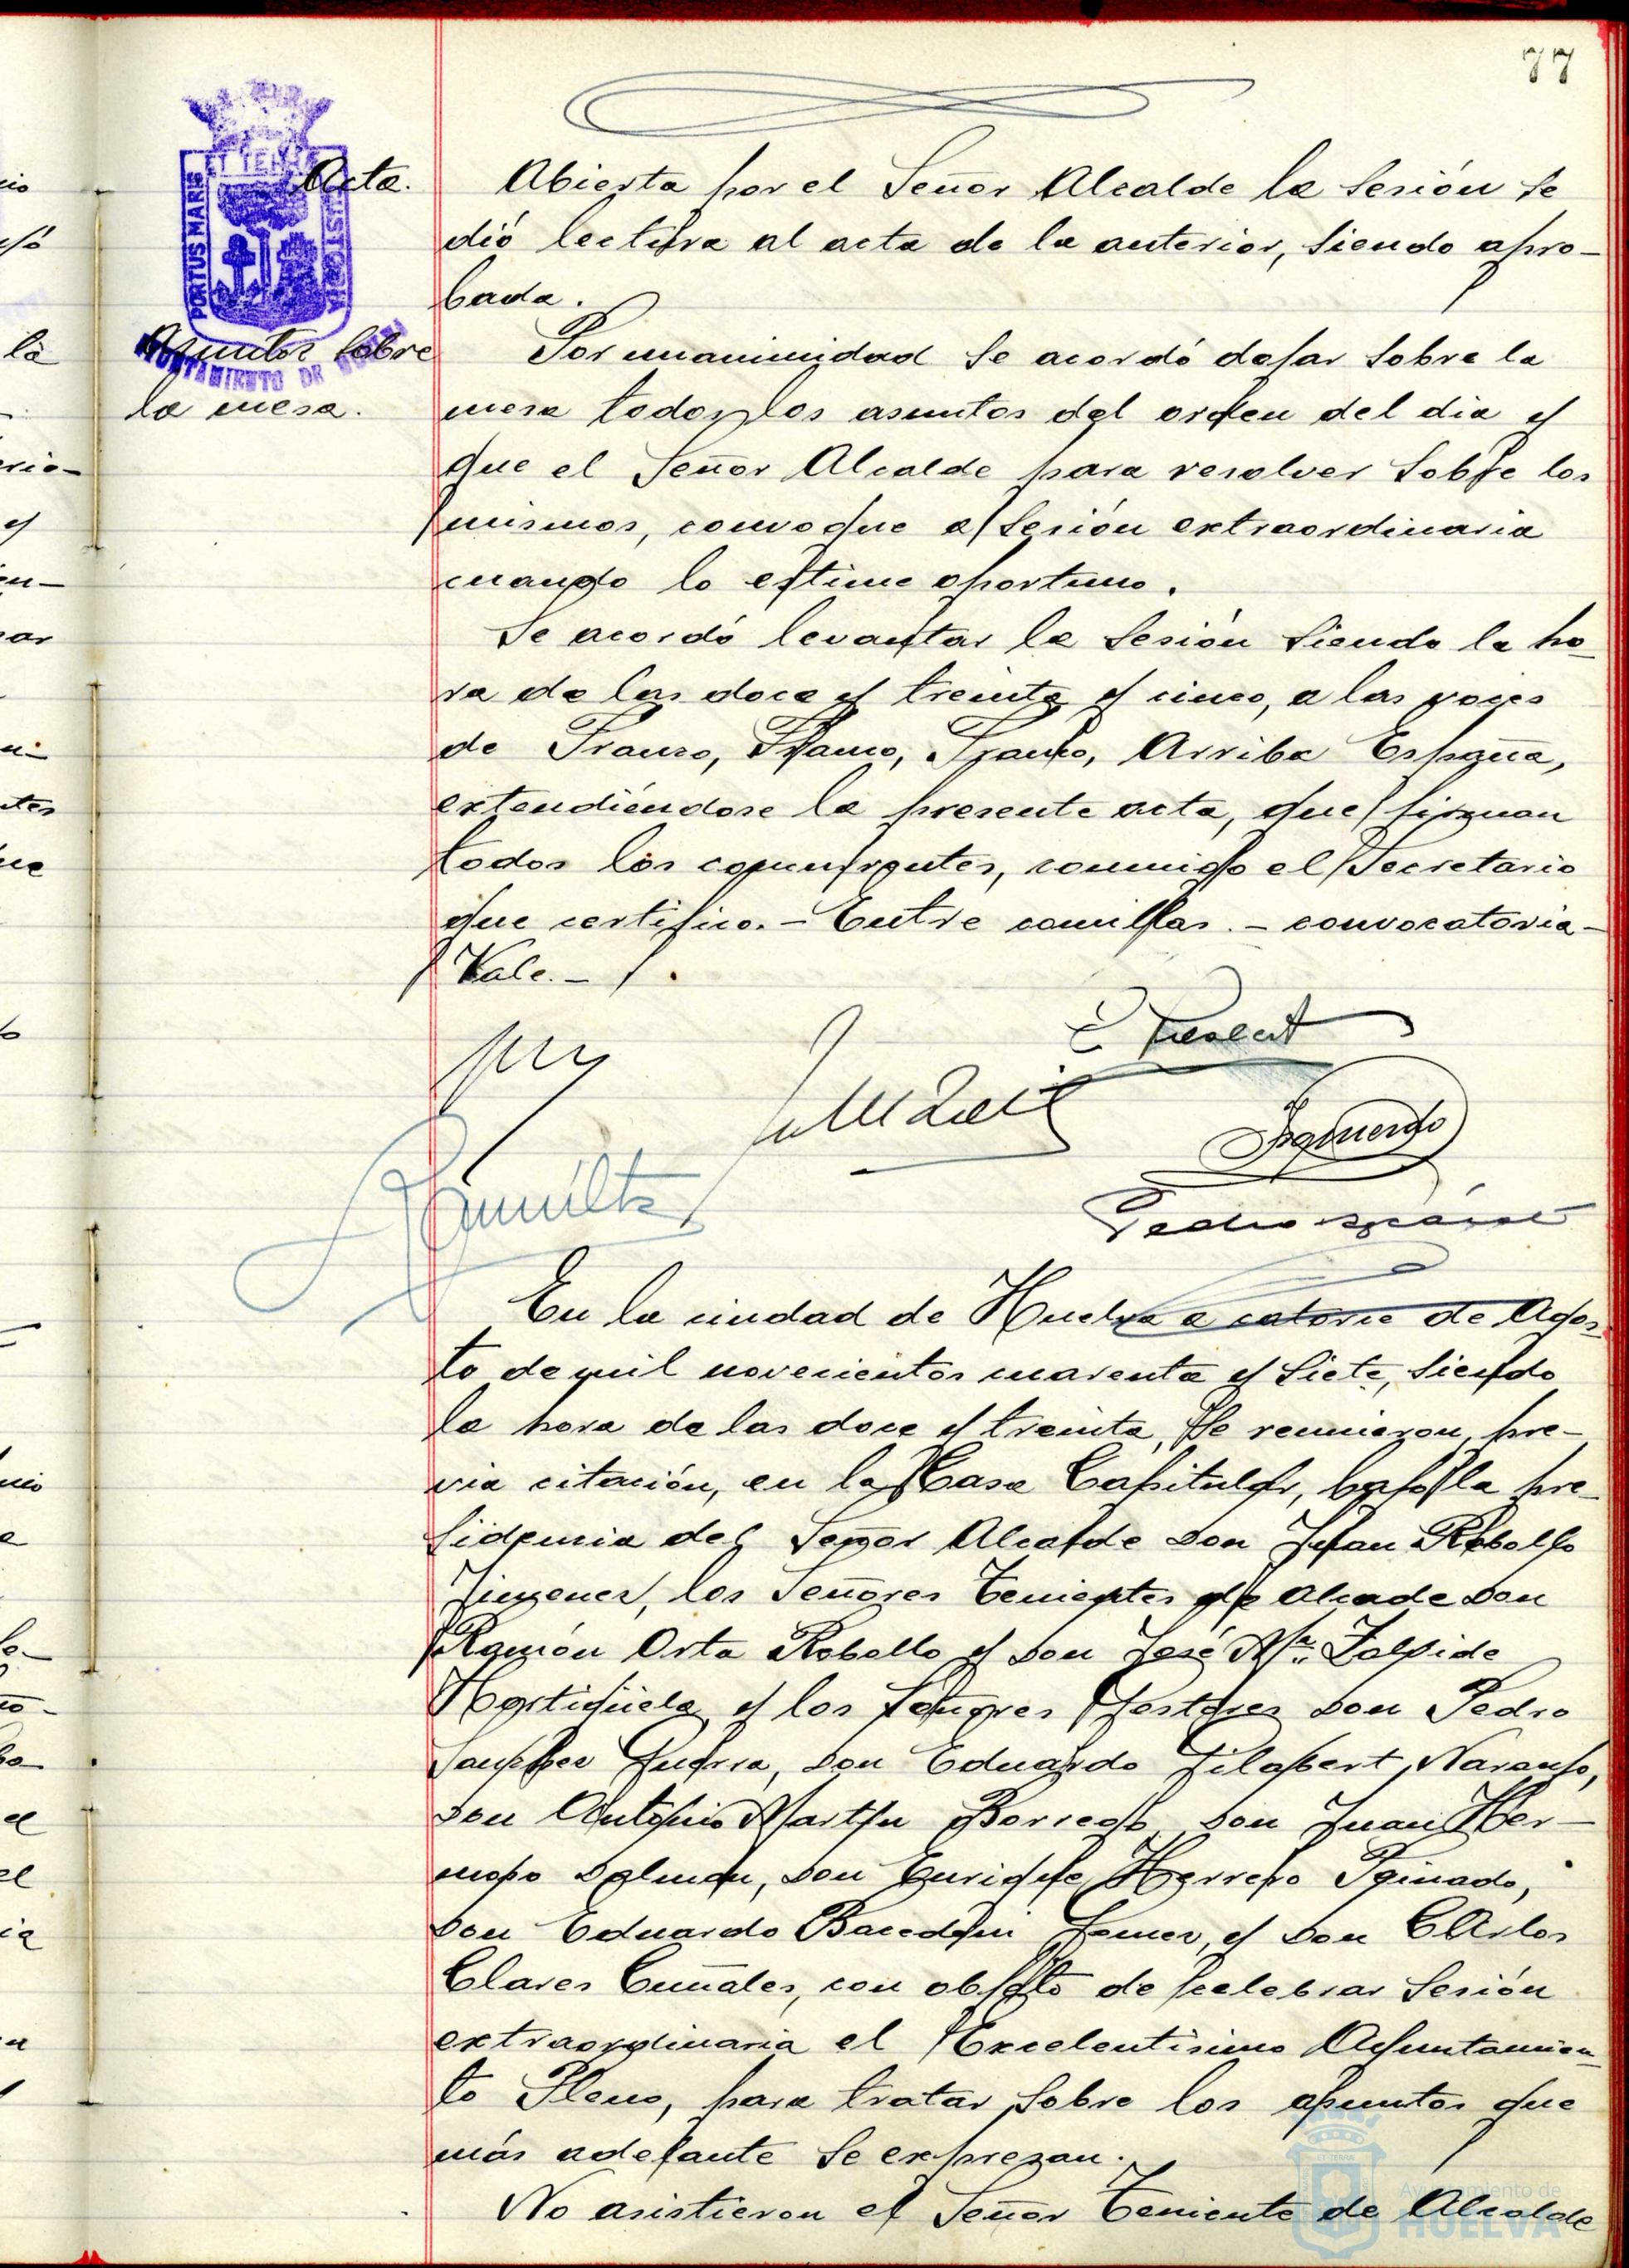 77
PORTUS MARIS
ET TERRE
CUSTODIA
AYUNTAMIENTO DE HUELVA
Acta.
Abierta por el Señor Alcalde la sesión se
dió lectura al acta de la anterior, siendo apro-
bada.
Asuntos sobre
la mesa.
Por unanimidad se acordó dejar sobre la
mesa todos los asuntos del orden del dia y
que el Señor Alcalde para resolver sobre los
mismos, convoque a sesión extraordinaria
cuando lo estime oportuno.
Se acordó levantar la sesión siendo la ho-
ra de las doce y treinta y cinco, a las voces
de Franco, Franco, Franco, Arriba España,
extendiéndose la presente acta, que firman
todos los concurrentes, conmigo el Secretario
que certifico.- Entre comillas.- convocatoria-
Vale.-
Izquierdo
Pedro
En la ciudad de Huelva a catorce de Agos-
to de mil novecientos cuarenta y siete, siendo
la hora de las doce y treinta, se reunieron, pre-
via citación, en la Casa Capitular, bajo la pre-
sidencia del Señor Alcalde Don Juan Rebollo
Jimenez, los Señores Tenientes de Alcade Don
Ramón Orta Rebollo y Don José Mª. Zalvide
Hortigüela y los Señores Gestores Don Pedro
Sanchez Guerra, Don Eduardo Gilabert Naranjo,
Don Antonio Martin Borrego, Don Juan Her-
moso Dalmau, Don Enrique Herrero Peinado,
Don Eduardo Bacedoni Gomez, y Don CArlos
Clares Cuñales, con objeto de celebrar sesión
extraordinaria el Excelentisimo Ayuntamien-
to Pleno, para tratar sobre los asuntos que
más adelante se expresan.
No asistieron el Señor Teniente de Alcalde
Ayuntamiento de
HUELVA